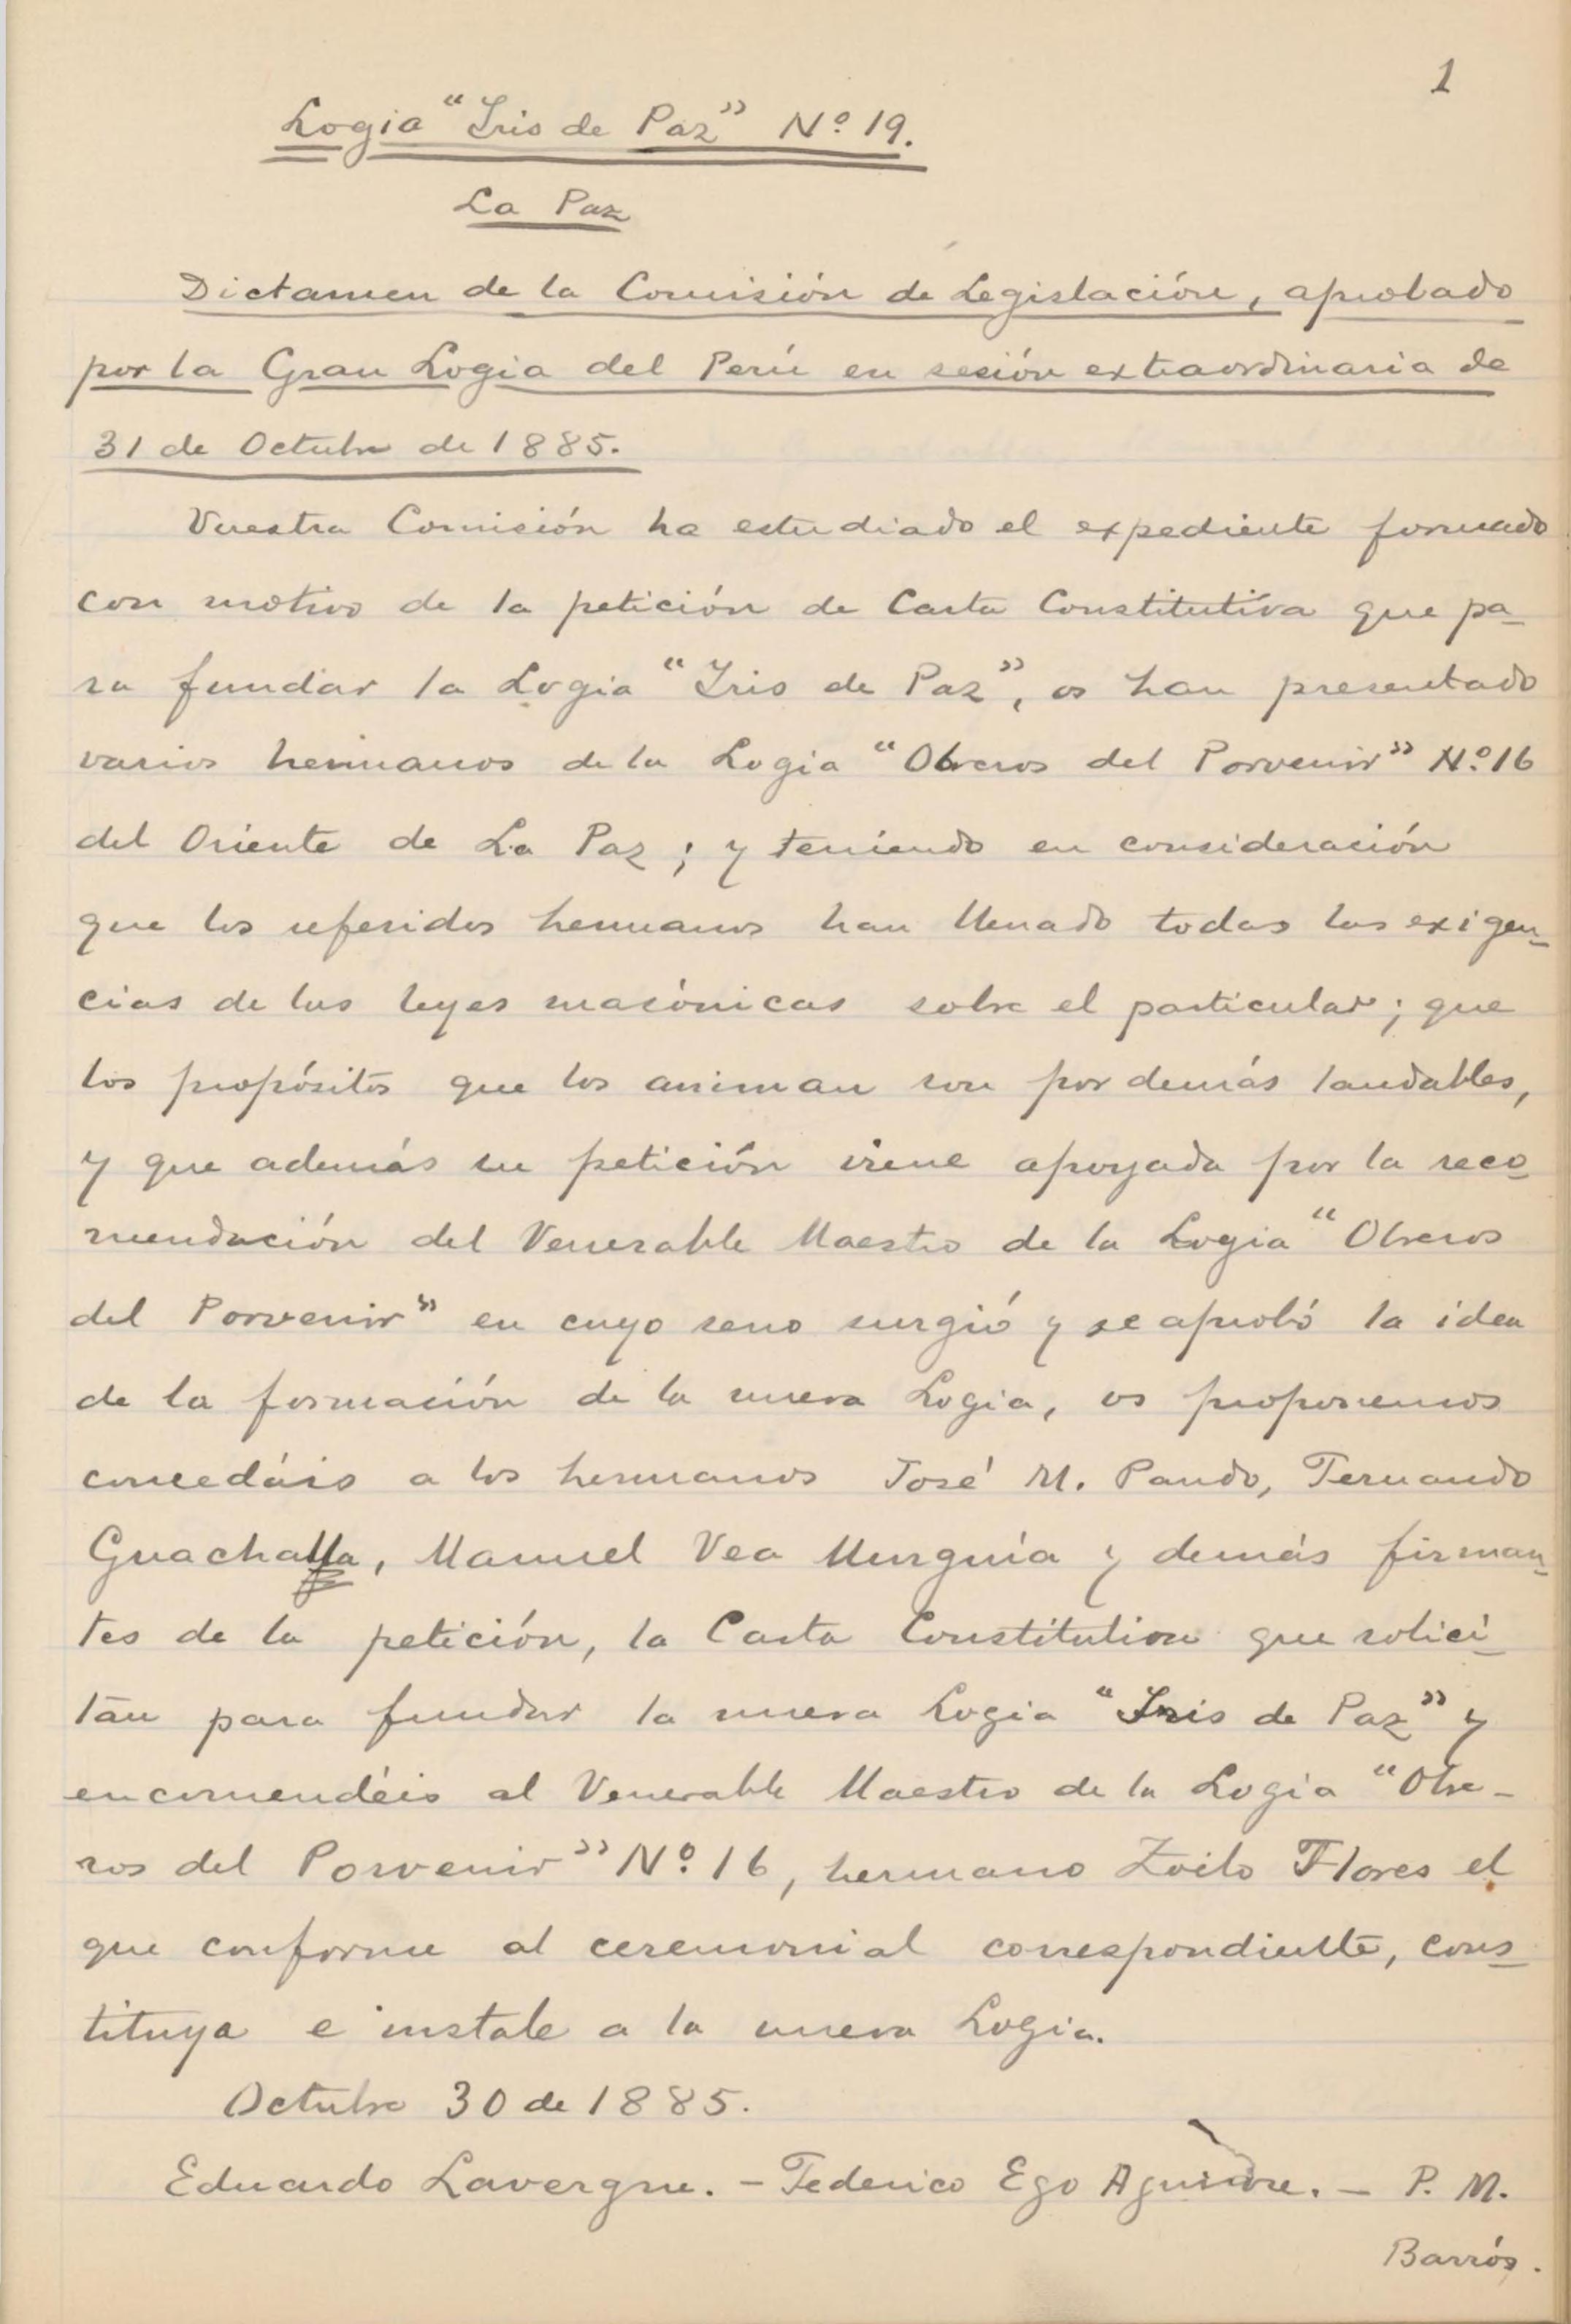 1
Logia "Iris de Paz" Nº 19.
La Paz
Dictamen de la Comisión de Legislación, aprobado
por la Gran Logia del Perú en sesión extraordinaria de
31 de Octubre de 1885.
Vuestra Comisión ha estudiado el expediente formado
con motivo de la petición de Carta Constitutiva que pa-
ra fundar la Logia "Iris de Paz", os han presentado
varios hermanos de la Logia "Obreros del Porvenir" Nº 16
del Oriente de La Paz; y teniendo en consideración
que los referidos hermanos han llenado todas las exigen-
cias de las leyes masónicas sobre el particular; que
los propósitos que los animan son por demás laudables,
y que además su petición viene apoyada por la reco-
mendación del Venerable Maestro de la Logia "Obreros
del Porvenir" en cuyo seno surgió y se aprobó la idea
de la formación de la nueva Logia, os proponemos
concedáis a los hermanos José M. Pando, Fernando
Guachalla, Manuel Vea Murguía y demás firman-
tes de la petición, la Carta Constitutiva que solici-
tan para fundar la nueva Logia "Iris de Paz" y
encomendéis al Venerable Maestro de la Logia "Obre-
ros del Porvenir" Nº 16, hermano Zoilo Flores el
que conforme al ceremonial correspondiente, cons-
tituya e instale a la nueva Logia.
Octubre 30 de 1885.
Eduardo Lavergne. - Federico Ego Aguirre. - P. M.
Barrós.